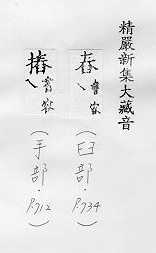 精嚴新集大藏音
書容
(臼部．P.734)
書容
(手部．P.712)